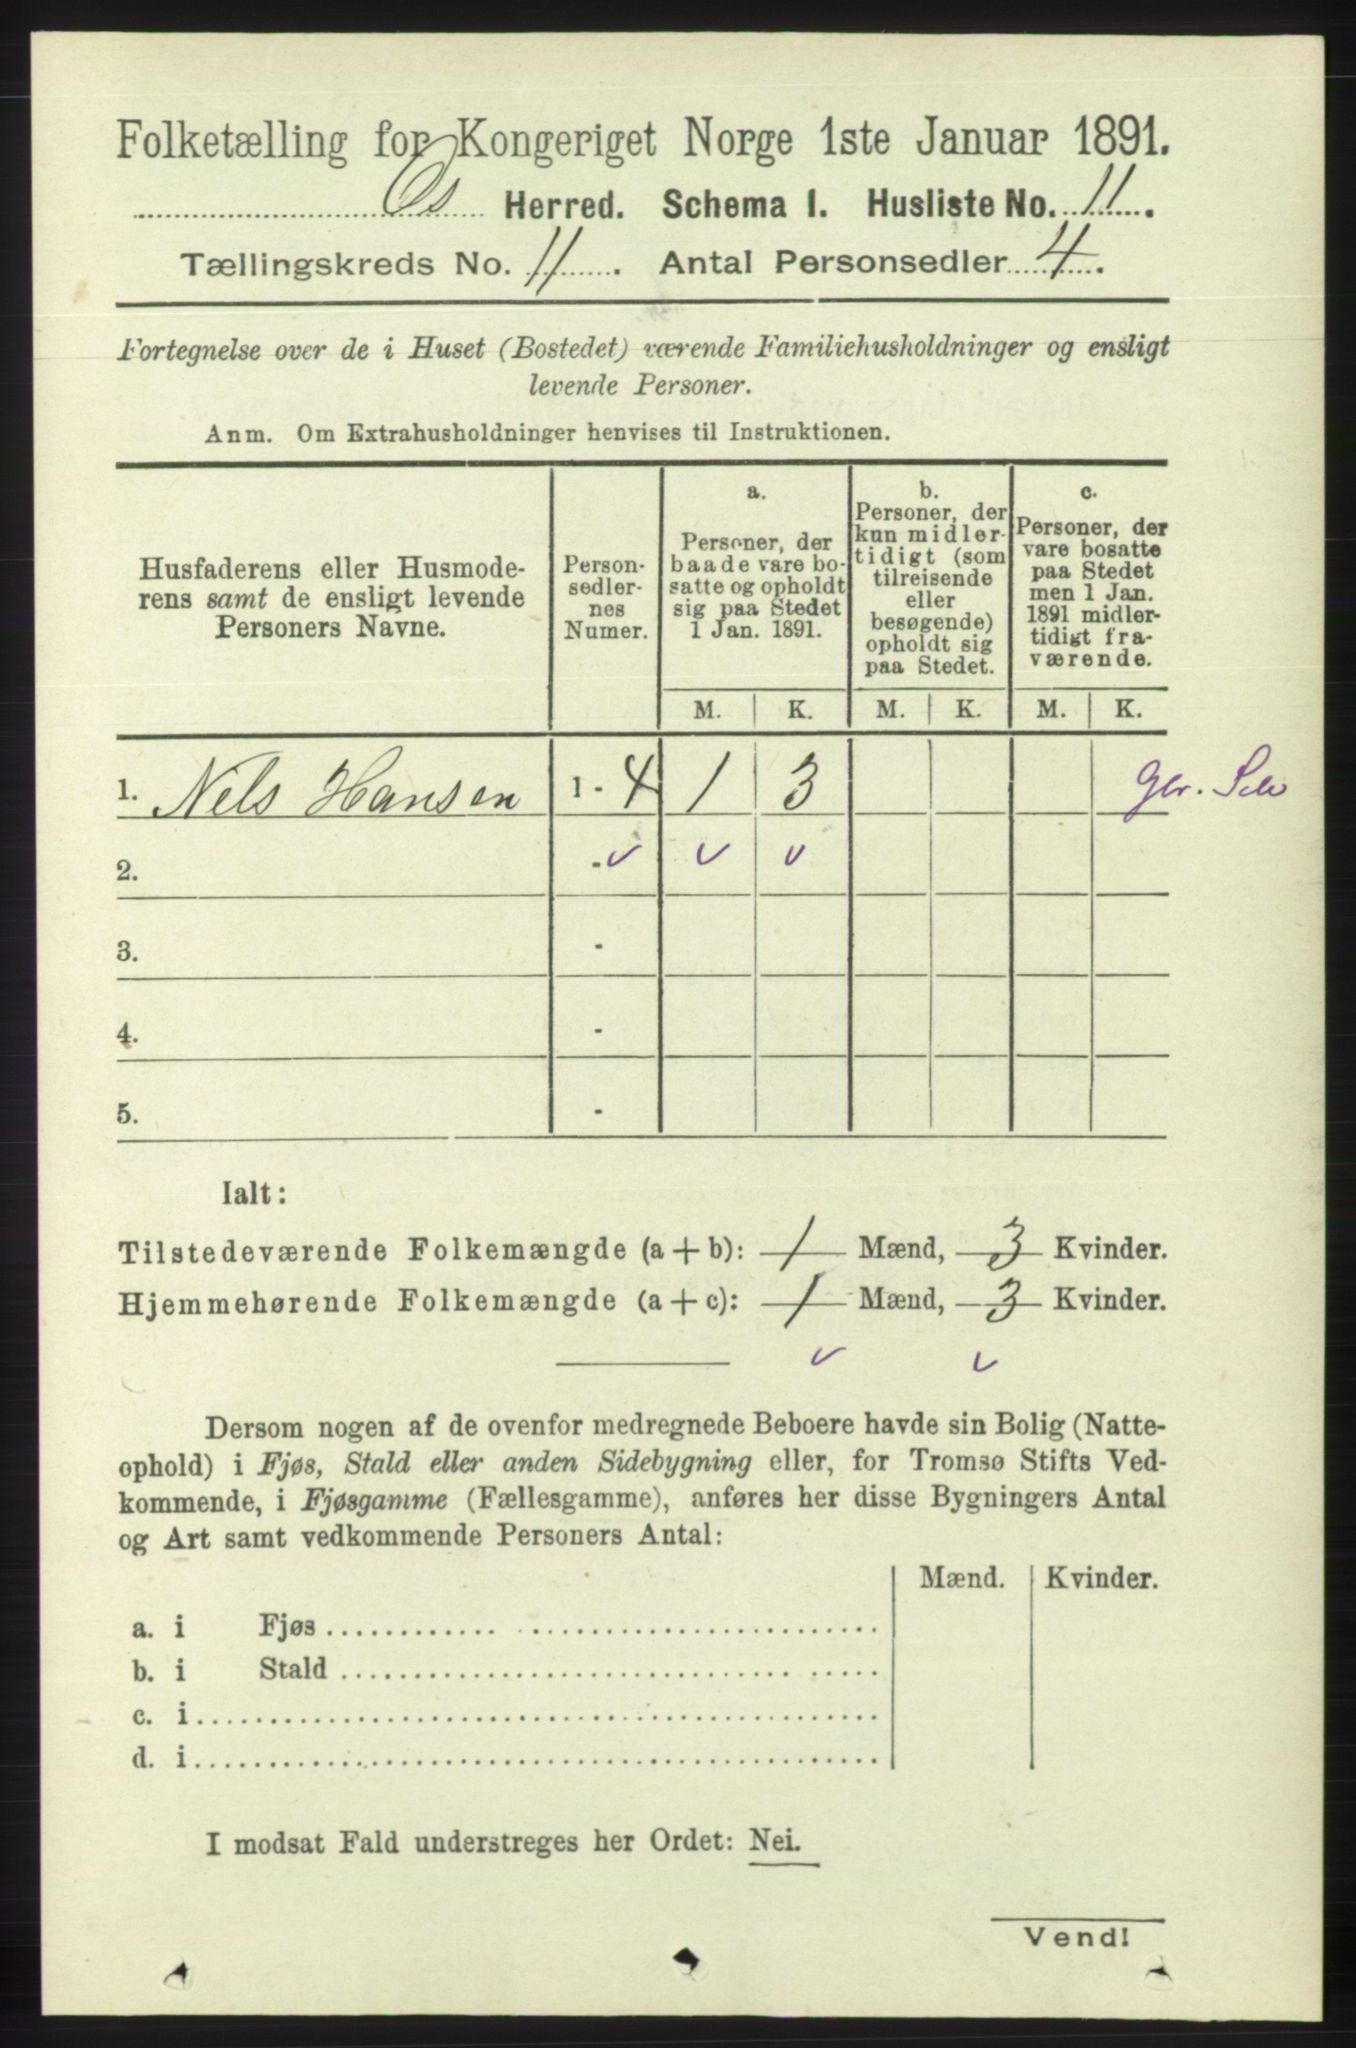 Folketælling for Kongeriget Norge 1ste Januar 1891.
Os Herred. Schema I. Husliste No. 11.
Tællingskreds No. 11. Antal Personsedler 4.
Fortegnelse over de i Huset (Bostedet) værende Familiehusholdninger og ensligt
levende Personer.
Anm. Om Extrahusholdninger henvises til Instruktionen.
Husfaderens eller Husmode-
rens samt de ensligt levende
Personers Navne.
Person-
sedler-
nes
Numer.
a.
Personer, der
baade vare bo-
satte og opholdt
sig paa Stedet
1 Jan. 1891.
b.
Personer, der
kun midler-
tidigt (som
tilreisende
eller
besøgende)
opholdt sig
paa Stedet.
c.
Personer, der
vare bosatte
paa Stedet
men 1 Jan.
1891 midler-
tidigt fra-
værende.
M. K. M. K. M. K.
1. Nels Hansen 1 - 4 1 3
2. -
3. -
4. -
5. -
Ialt:
Tilstedeværende Folkemængde (a + b): 1 Mænd, 3 Kvinder.
Hjemmehørende Folkemængde (a + c): 1 Mænd, 3 Kvinder.
Dersom nogen af de ovenfor medregnede Beboere havde sin Bolig (Natte-
ophold) i Fjøs, Stald eller anden Sidebygning eller, for Tromsø Stifts Ved-
kommende, i Fjøsgamme (Fællesgamme), anføres her disse Bygningers Antal
og Art samt vedkommende Personers Antal:
Mænd. Kvinder.
a. i Fjøs
b. i Stald
c. i
d. i
I modsat Fald understreges her Ordet: Nei.
Vend!